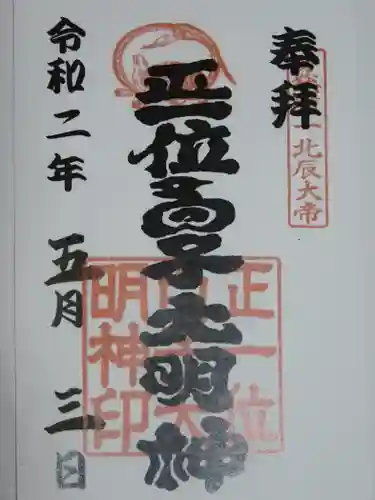 奉拝
北辰大帝
正一位高子大明神
正一位
明神印
令和二年 五月 三日